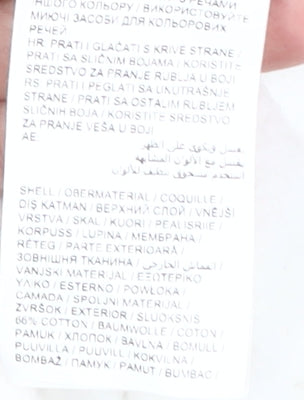 НШОГО КОЛЬОРУ / ВИКОРИСТОВУЙТЕ
МИЮЧІ ЗАСОБИ ДЛЯ КОЛЬОРОВИХ
РЕЧЕЙ
HR: PRATI I GLAČATI S KRIVE STRANE /
PRATI SA SLIČNIM BOJAMA / KORISTITE
SREDSTVO ZA PRANJE RUBLJA U BOJI
RS: PRATI I PEGLATI SA UNUTRAŠNJE
STRANE / PRATI SA OSTALIM RUBLJEM
SLIČNIH BOJA / KORISTITE SREDSTVO
ZA PRANJE VEŠA U BOJI
AE:
غسل وكوي على
غسل مع الألوان المشابهة
استخدم مسحوق
SHELL / OBERMATERIAL / COQUILLE /
DIŞ KATMAN / ВЕРХНИЙ СЛОЙ / VNĚJŠÍ
VRSTVA / SKAL / KUORI / PEALISRIIE /
KORPUSS / LUPINA / МЕМБРАНА /
RÉTEG / PARTE EXTERIOARĂ /
ЗОВНІШНЯ ТКАНИНА / القماش الخارجي /
VANJSKI MATERIJAL / ΕΞΩΤΕΡΙΚΟ
ΥΛΙΚΟ / ESTERNO / POWŁOKA /
CAMADA / SPOLJNI MATERIJAL /
ZVRŠOK / EXTERIOR / SLUOKSNIS
66% COTTON / BAUMWOLLE / COTON /
PAMUK / ХЛОПОК / BAVLNA / BOMULL /
PUUVILLA / PUUVILL / KOKVILNA /
BOMBAŽ / ПАМУК / PAMUT / BUMBAC /